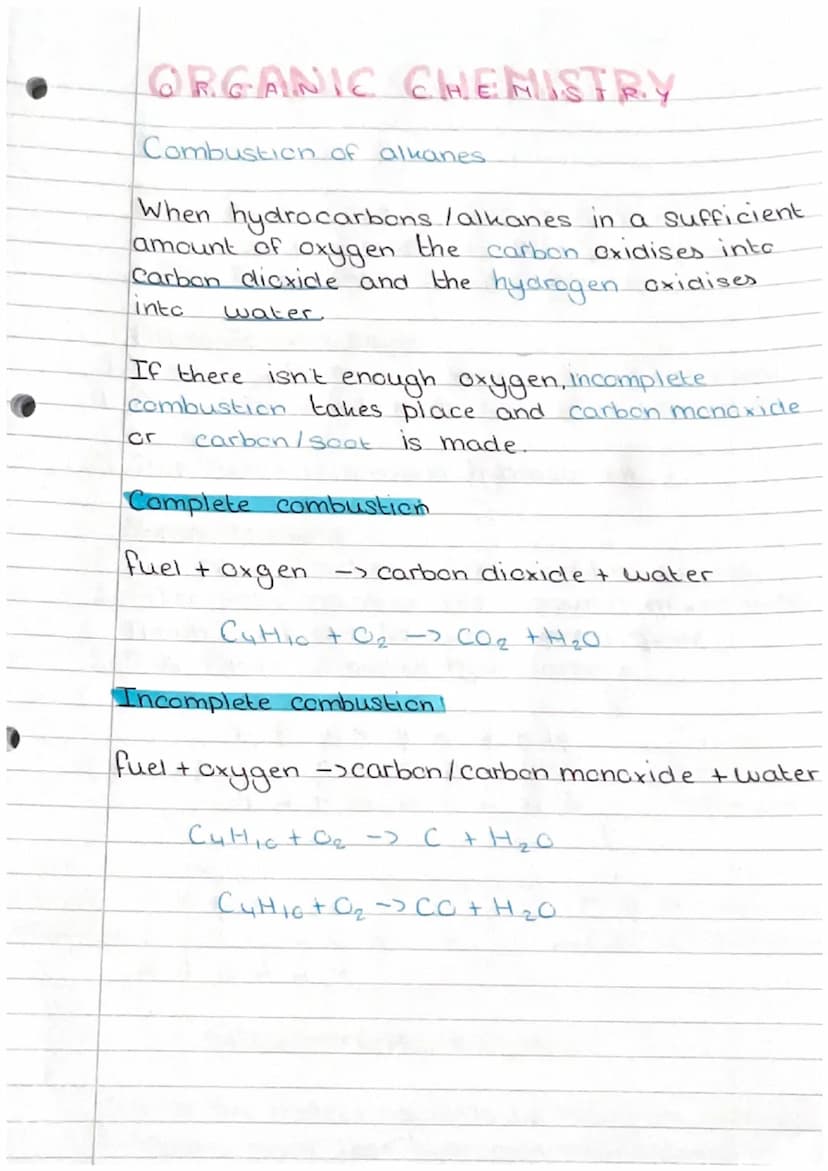 ORGANIC CHEMISTRY
Combustion of alkanes
When hydrocarbons / alkanes in a sufficient
amount of oxygen the carbon oxidises into
carbon dioxide and the hydrogen oxidises
into water
If there isn't enough oxygen, incomplete
combustion takes place and carbon monoxide
or carbon / soot is made.
Complete combustion
fuel + oxgen -> carbon dioxide + water
C₄H₁₀ + O₂ -> CO₂ + H₂O
Incomplete combustion
fuel + oxygen -> carbon / carbon monoxide + water
C₄H₁₀ + O₂ -> C + H₂O
C₄H₁₀ + O₂ -> CO + H₂O